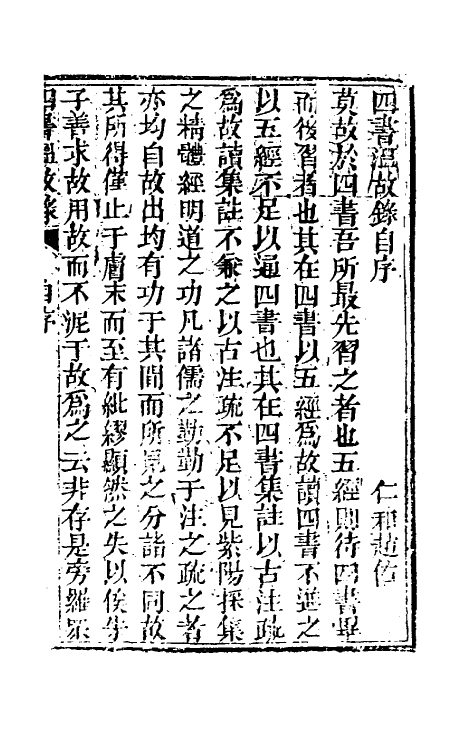 四書溫故錄自序
仁和趙佑
莫故於四書吾所最先習之者也五經則待四書畢
而後習者也其在四書以五經爲故讀四書不進之
以五經不足以通四書也其在四書集註以古注疏
爲故讀集註不參之以古注疏不足以見紫陽採集
之精體經明道之功凡諸儒之勤勤于注之疏之者
亦均自故出均有功于其間而所見之分詣不同故
其所得僅止于膚末而至有紕繆顯然之失以俟學
子善求故用故而不泥于故爲之云非存是旁羅
四書溫故錄 自序